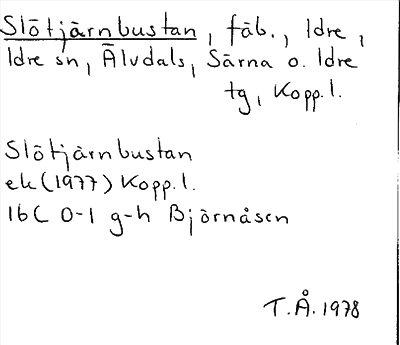 Slötjärnbustan, fäb., Idre,
Idre sn, Älvdals, Särna o. Idre
tg, Kopp.l.
Slötjärnbustan
ek (1977) Kopp.l.
16C 0-1 g-h Björnåsen
T.Å. 1978